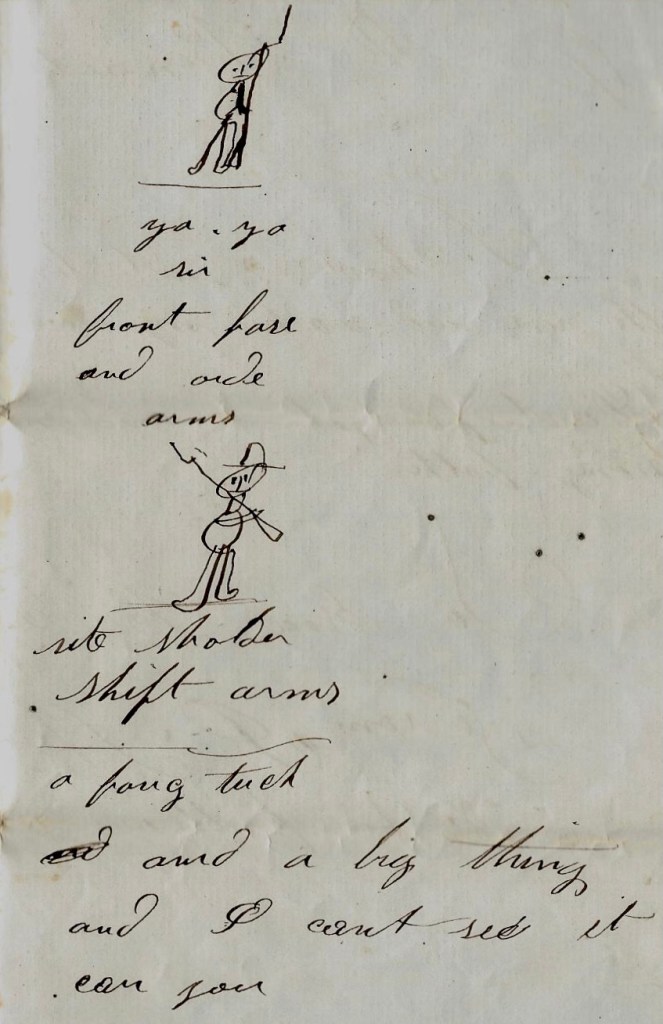 ya . ya
sir
front fase
and orde
arms
rite sholder
shift arms
a fong tuck
and a big thing
and I cant see it
can you